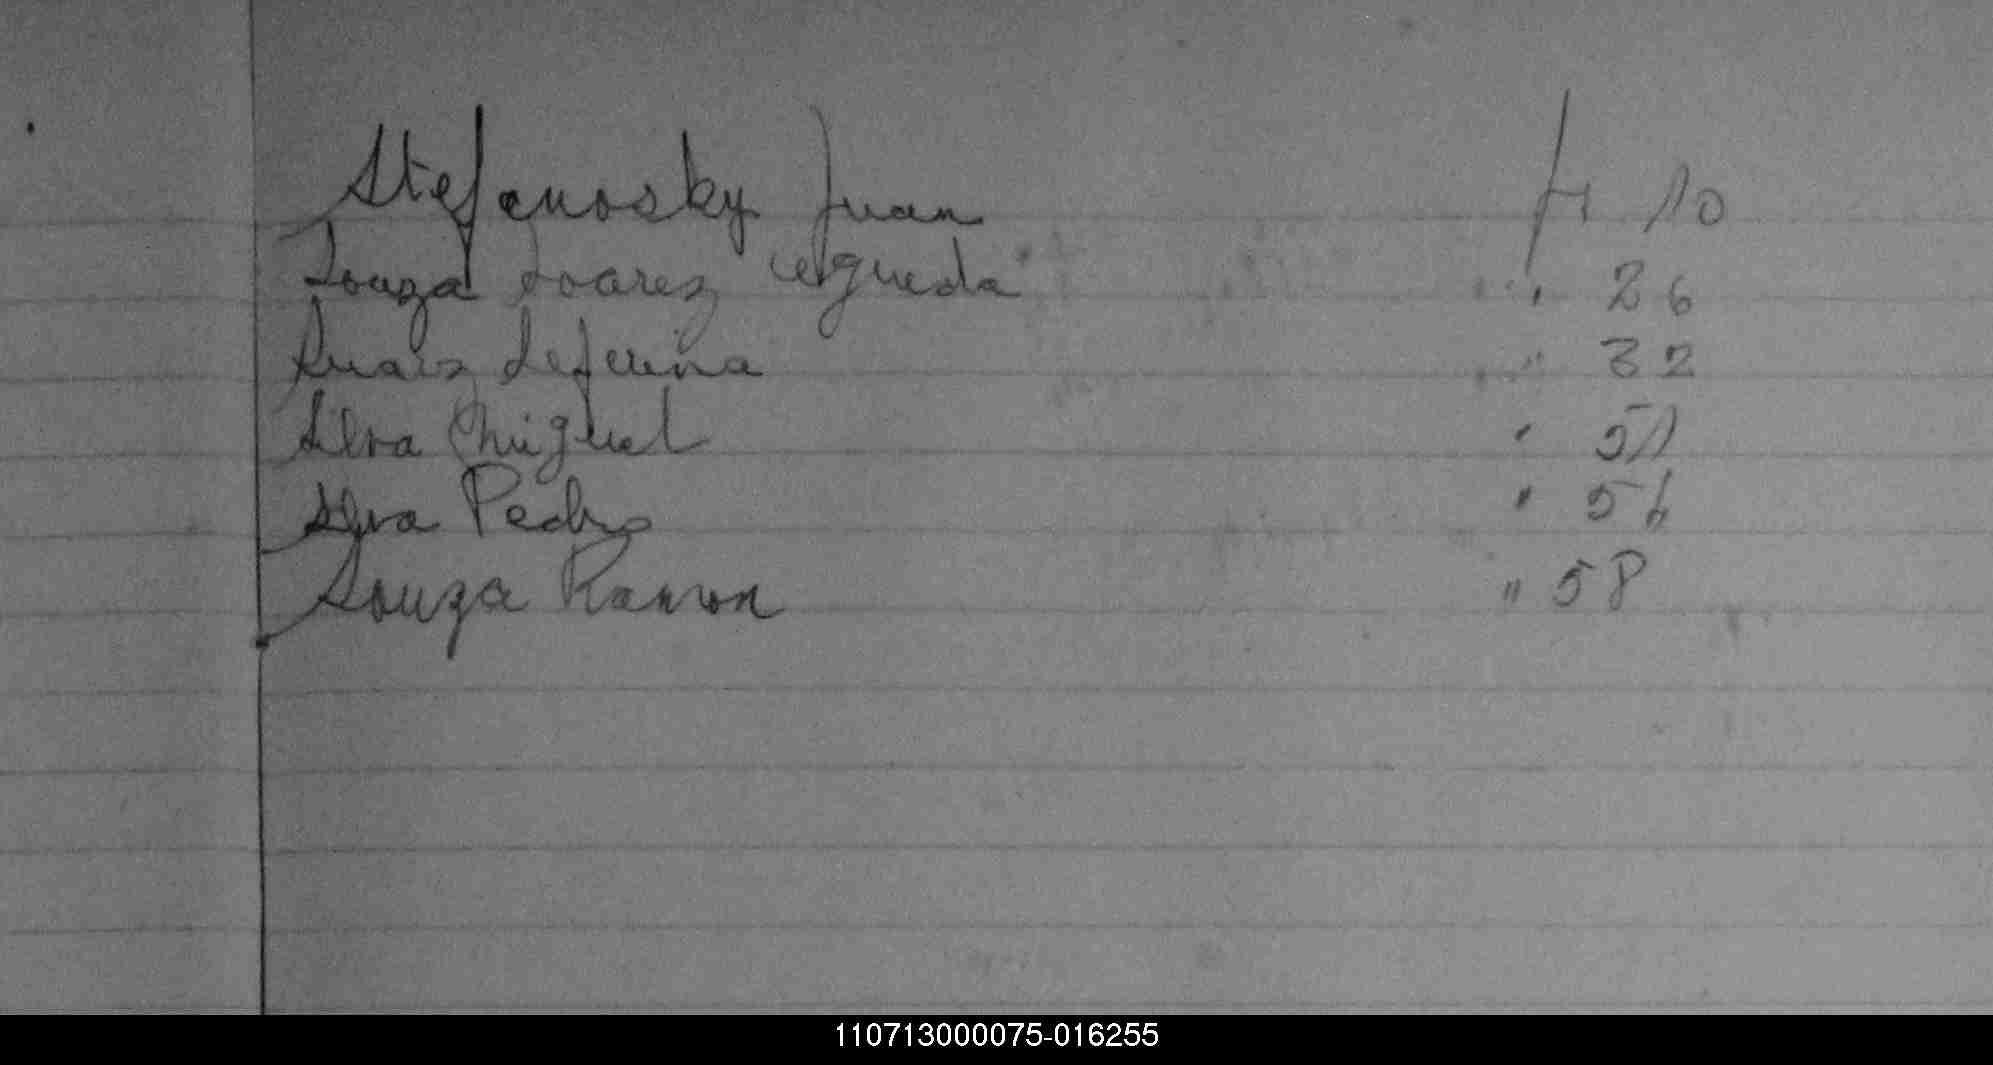 Stefanosky Juan f. 10
Souza Soarez Agueda " 26
Suarez Seferina " 32
Silva Miguel " 51
Silva Pedro " 56
Souza Ramon " 58
110713000075-016255